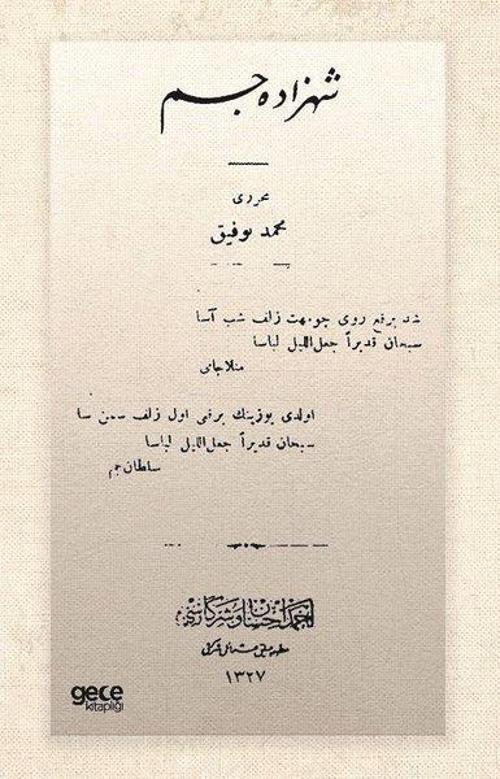 شهزاده جم
محرری
محمد توفیق
شد برقع روی چو مهت زلف شب آسا
سبحان قدیراً جعل اللیل لباسا
منلا جامی
اولدی یوزینك برقعی اول زلف سمن سا
سبحان قدیراً جعل اللیل لباسا
سلطان جم
احمد احسان و شرکاسی
مطبعه‌جیلق عثمانلی شرکتی
١٣٢٧
gece
kitaplığı